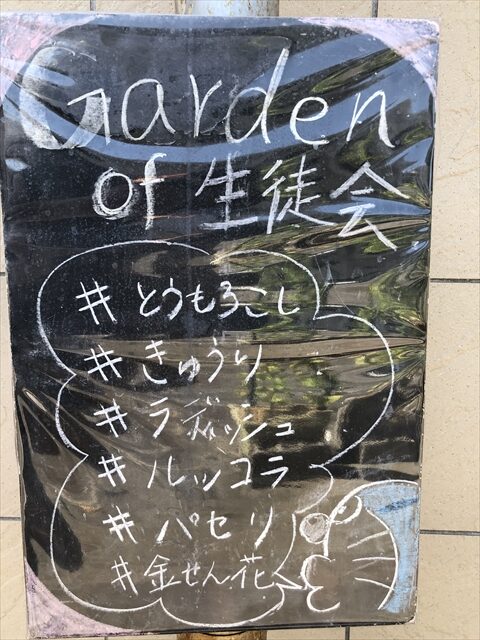 Garden
of 生徒会
# とうもろこし
# きゅうり
# ラディッシュ
# ルッコラ
# パセリ
# 金せん花